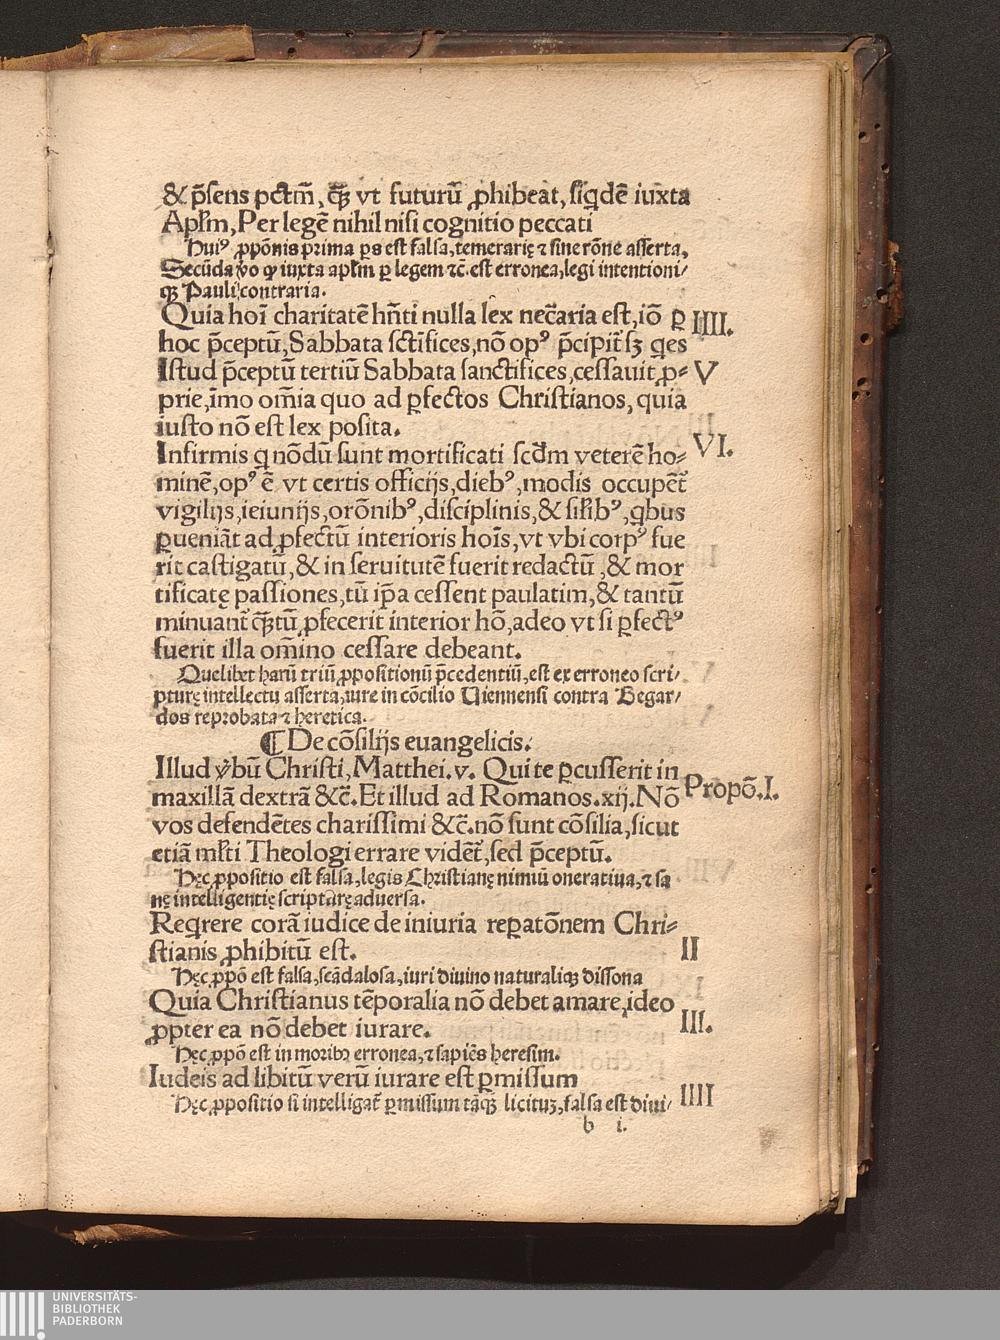 & p̄sens pctm̄, q̄ꝫ vt futurū ꝓhibeat, siq̇dē iuxta
Apl'm, Per legē nihil nisi cognitio peccati
Huiꝰ ꝓpōnis prima ꝑs est falsa, temerarię ⁊ sine rōne asserta,
Secūda v̊o ꝙ iuxta apl'm ꝑ legem ⁊c. est erronea, legi intentioni⸗
qꝫ Pauli contraria.
Quia hoī charitatē hn̄ti nulla lex nec̄aria est, iō ꝑ IIII.
hoc p̄ceptū, Sabbata sctīfices, nō opꝰ p̄cipit̄ sꝫ q̇es
Istud p̄ceptū tertiū Sabbata sanctifices, cessauit ꝓ⸗ V
prie, īmo om̄ia quo ad ꝑfectos Christianos, quia
iusto nō est lex posita.
Infirmis q̇ nōdū sunt mortificati scd̄m veterē ho⸗ VI.
minē, opꝰ ē vt certis officijs, diebꝰ, modis occupēt̄
vigilijs, ieiunijs, orōnibꝰ, disciplinis, & sil'ibꝰ, q̇bus
ꝑueniāt ad ꝓfectū interioris hoīs, vt vbi corpꝰ fue
rit castigatū, & in seruitutē fuerit redactū, & mor
tificatę passiones, tū ip̄a cessent paulatim, & tantū
minuant̄ q̄ꝫtū ꝓfecerit interior hō, adeo vt si ꝑfectꝰ
fuerit illa om̄ino cessare debeant.
Quelibet harū triū ꝓpositionū p̄cedentiū, est ex erroneo scri⸗
pturę intellectu asserta, iure in cōcilio Viennensi contra Begar⸗
dos reprobata ⁊ heretica.
¶ De cōsilijs euangelicis.
Illud v̊bū Christi, Matthei. v. Qui te ꝑcusserit in
maxillā dextrā &c̄. Et illud ad Romanos. xij. Nō Propō. I.
vos defendētes charissimi &c̄. nō sunt cōsilia, sicut
etiā ml'ti Theologi errare vidēt̄, sed p̄ceptū.
Hęc ꝓpositio est falsa, legis Christianę nimiū oneratiua, ⁊ sa
nę intelligentię scripturę aduersa.
Req̇rere corā iudice de iniuria reꝑatōnem Chri⸗
stianis ꝓhibitū est. II
Hęc ꝓpō est falsa, scādalosa, iuri diuino naturaliqꝫ dissona
Quia Christianus tēporalia nō debet amare, ideo
ꝓpter ea nō debet iurare. III.
Hęc ꝓpō est in moribꝰ erronea, ⁊ sapiēs heresim.
Iudeis ad libitū verū iurare est ꝑmissum
Hęc ꝓpositio si intelligat̄ ꝑmissum tāq̄ꝫ licituꝫ, falsa est diui⸗ IIII
b i.
UNIVERSITÄTS-
BIBLIOTHEK
PADERBORN